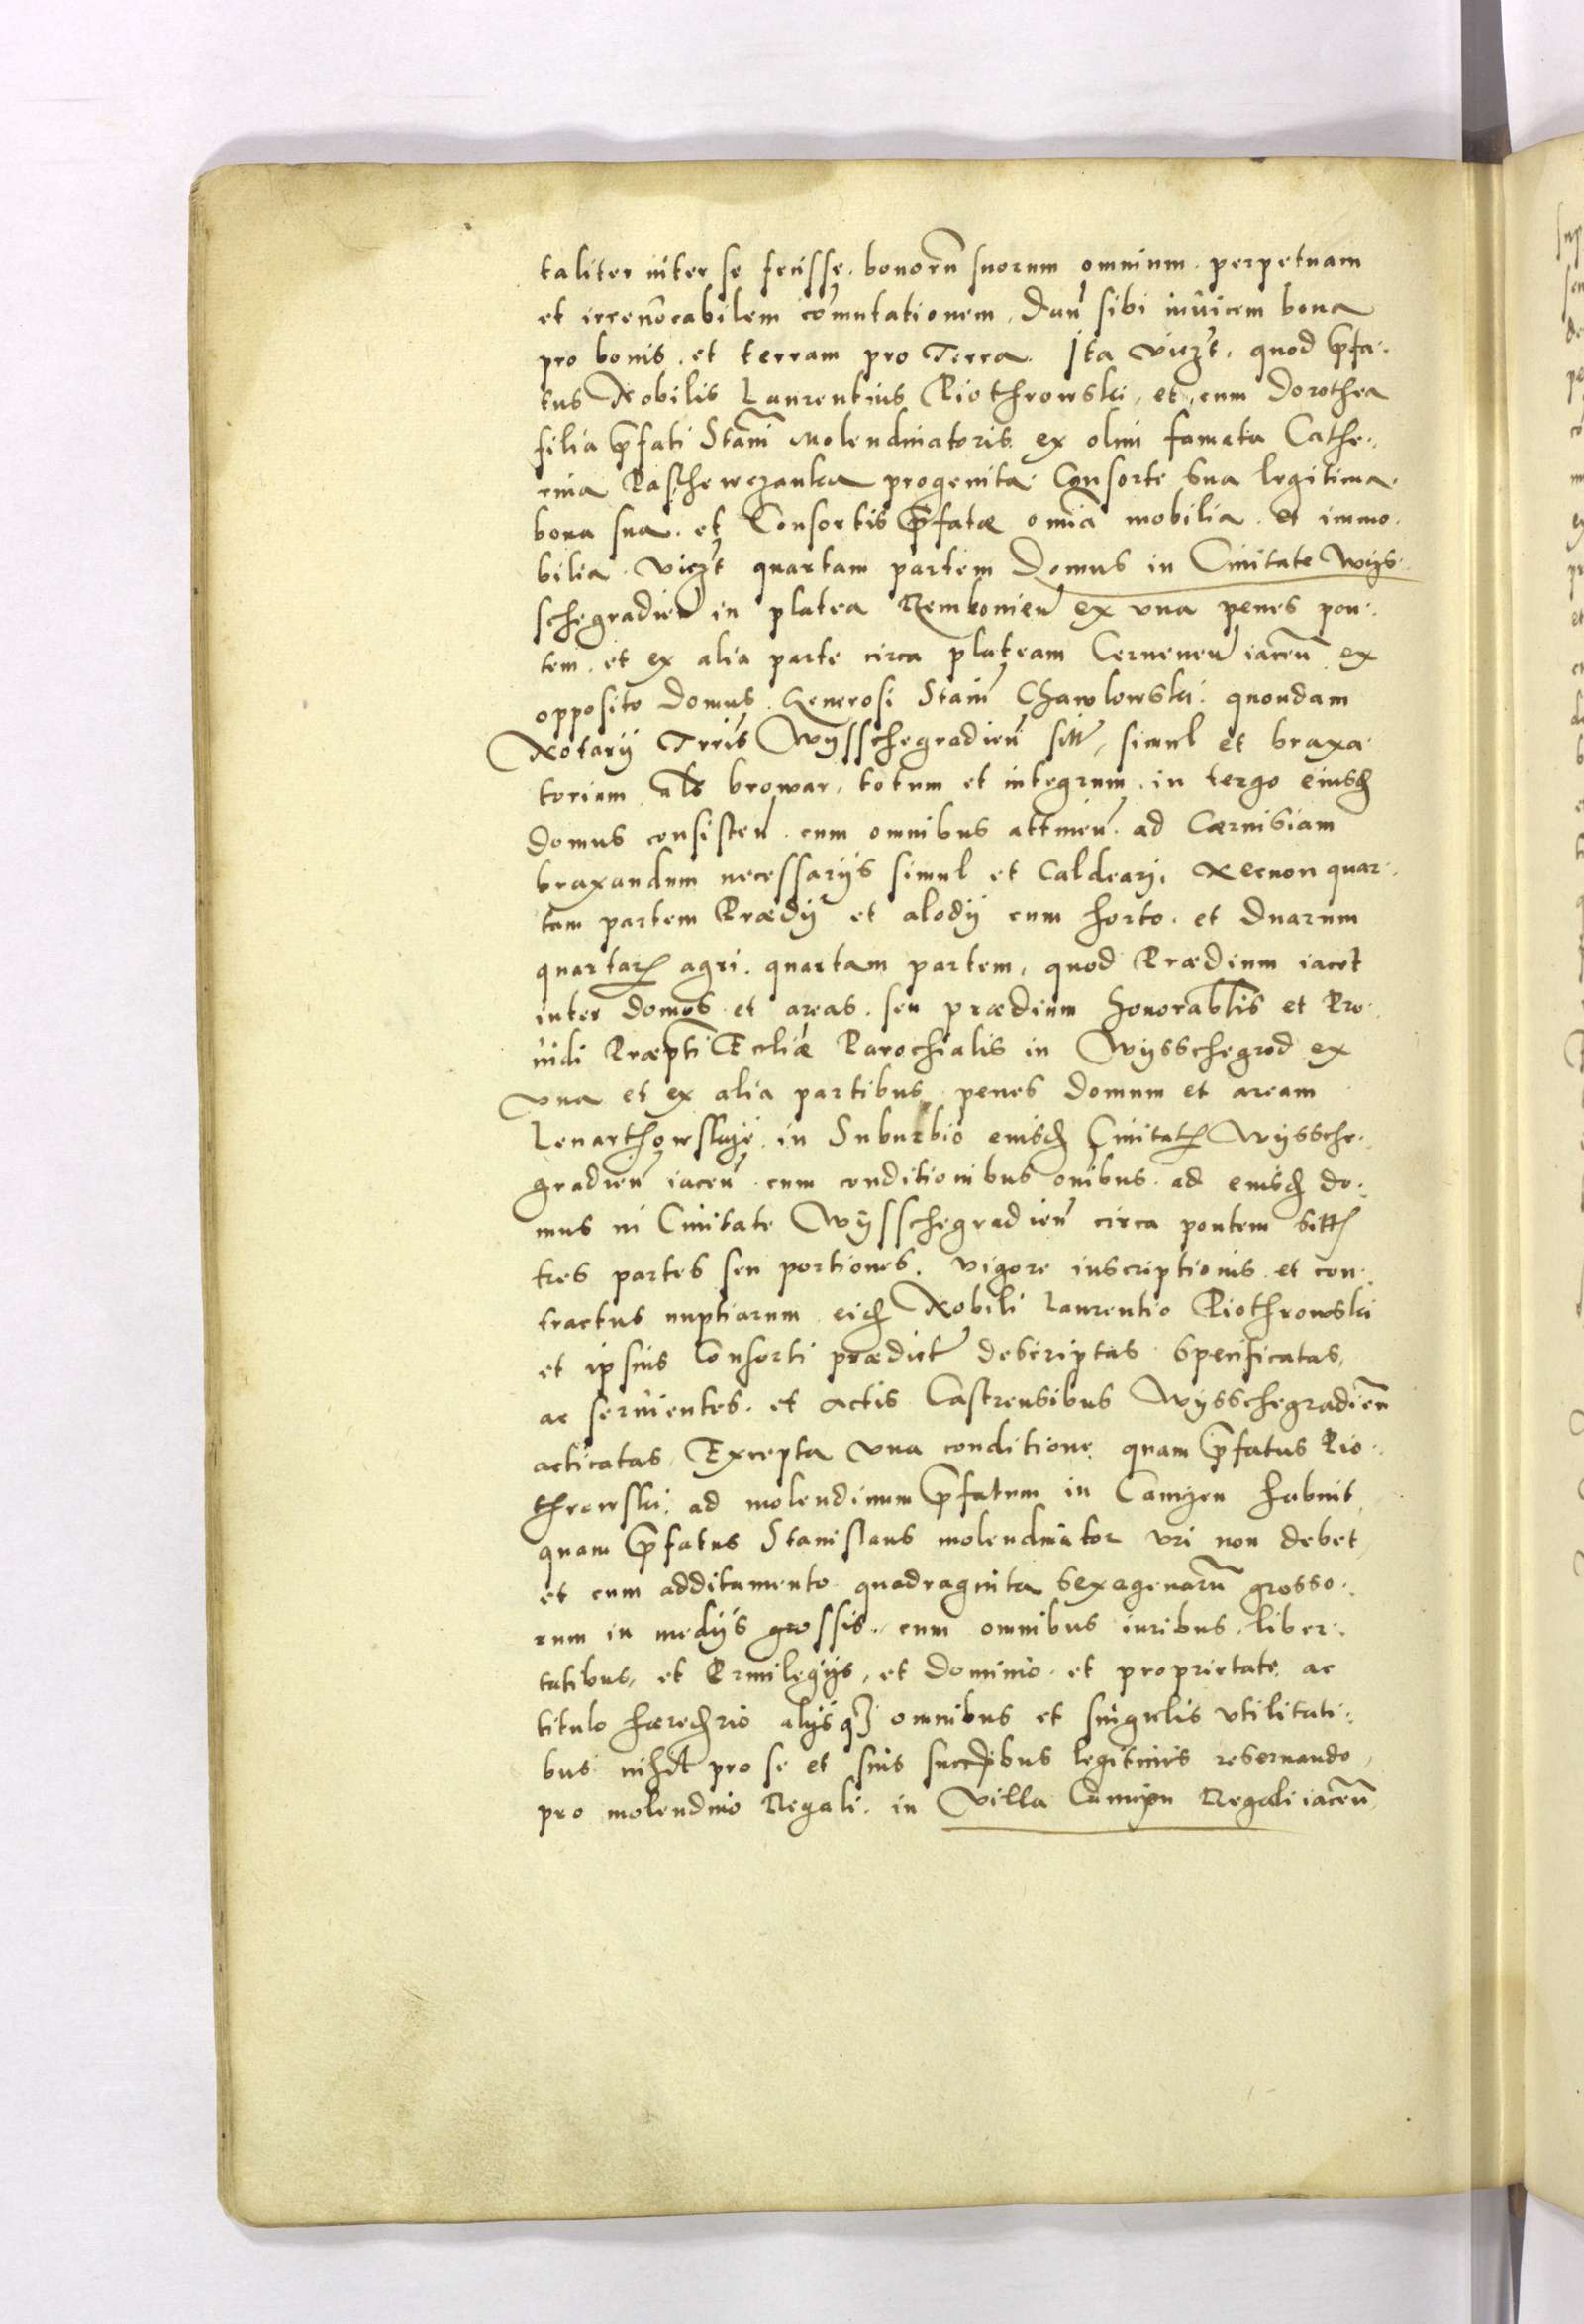 taliter inter se fecisse. bonorū suorum omnium. perpetuam
et irreuocabilem cōmutationem. Dan̄ sibi inuicem bona
pro bonis. et terram pro Terra. Ita vicz̄t. quod p̄fa-
tus Nobilis Laurentius Piothrowski, et cum Dorothea
filia p̄fati Stanī Molendinatoris ex olim famata Cathe-
rina Paschewczanka progenita. Consorte sua legitima.
bona sua. et Consortis p̄fatæ omīa mobilia. et immo-
bilia. vicz̄t quartam partem Domus in Ciuitate Wys-
schegradien̄ in platea Rembonien̄ ex vna penes pon-
tem. et ex alia parte circa plateam Cernenen̄ iacen̄ ex
opposito Domus. Generosi Stanī Chawlowski. quondam
Notarij Trr̄is Wysschegradien̄ sitt̄, simul et braxa-
torium al̄s browar, totum et integrum. in tergo eiusd̄
domus consisten̄. cum omnibus attinen̄. ad Cæruisiam
braxandum necessarijs simul et Caldearij. Necnon quar-
tam partem Prædij et alodij cum horto. et Duarum
quartar̄ agri. quartam partem, quod Prædium iacet
inter domos et areas. seu prædium honorabl̄is et Pro-
uidi Præpt̄i Eccliæ Parochialis in Wysschegrod ex
vna et ex alia partibus, penes domum et aream
Lenarthowskie. in Suburbio eiusd̄ Ciuitat̄ Wyssche-
gradien̄ iacen̄. cum conditionibus om̄ibus. ad eiusd̄ do-
mus in Ciuitate Wysschegradien̄ circa pontem sitt̄
tres partes seu portiones. vigore inscriptionis et con-
tractus nuptiarum eid̄ Nobili Laurentio Piothrowski
et ipsius Consorti prædict̄ descriptas specificatas,
ac seruientes. et Actis Castrensibus Wysschegradien̄
acticatas, Excepta vna conditione quam p̄fatus Pio-
throwski ad molendinum p̄fatum in habuit,
quam p̄fatus Stanislaus molendinator vti non debet,
et cum additamento quadraginta sexagenarū grosso-
rum in medijs grossis. cum omnibus iuribus. liber-
tatibus, et Priuilegijs, et Dominio. et proprietate ac
titulo hæred̄rio alijsq̨ omnibus et singulis vtilitati-
bus nihīl pro se et suis succr̄ibus legitimis reseruando,
pro molendino Regali. in Villa Regali iacen̄